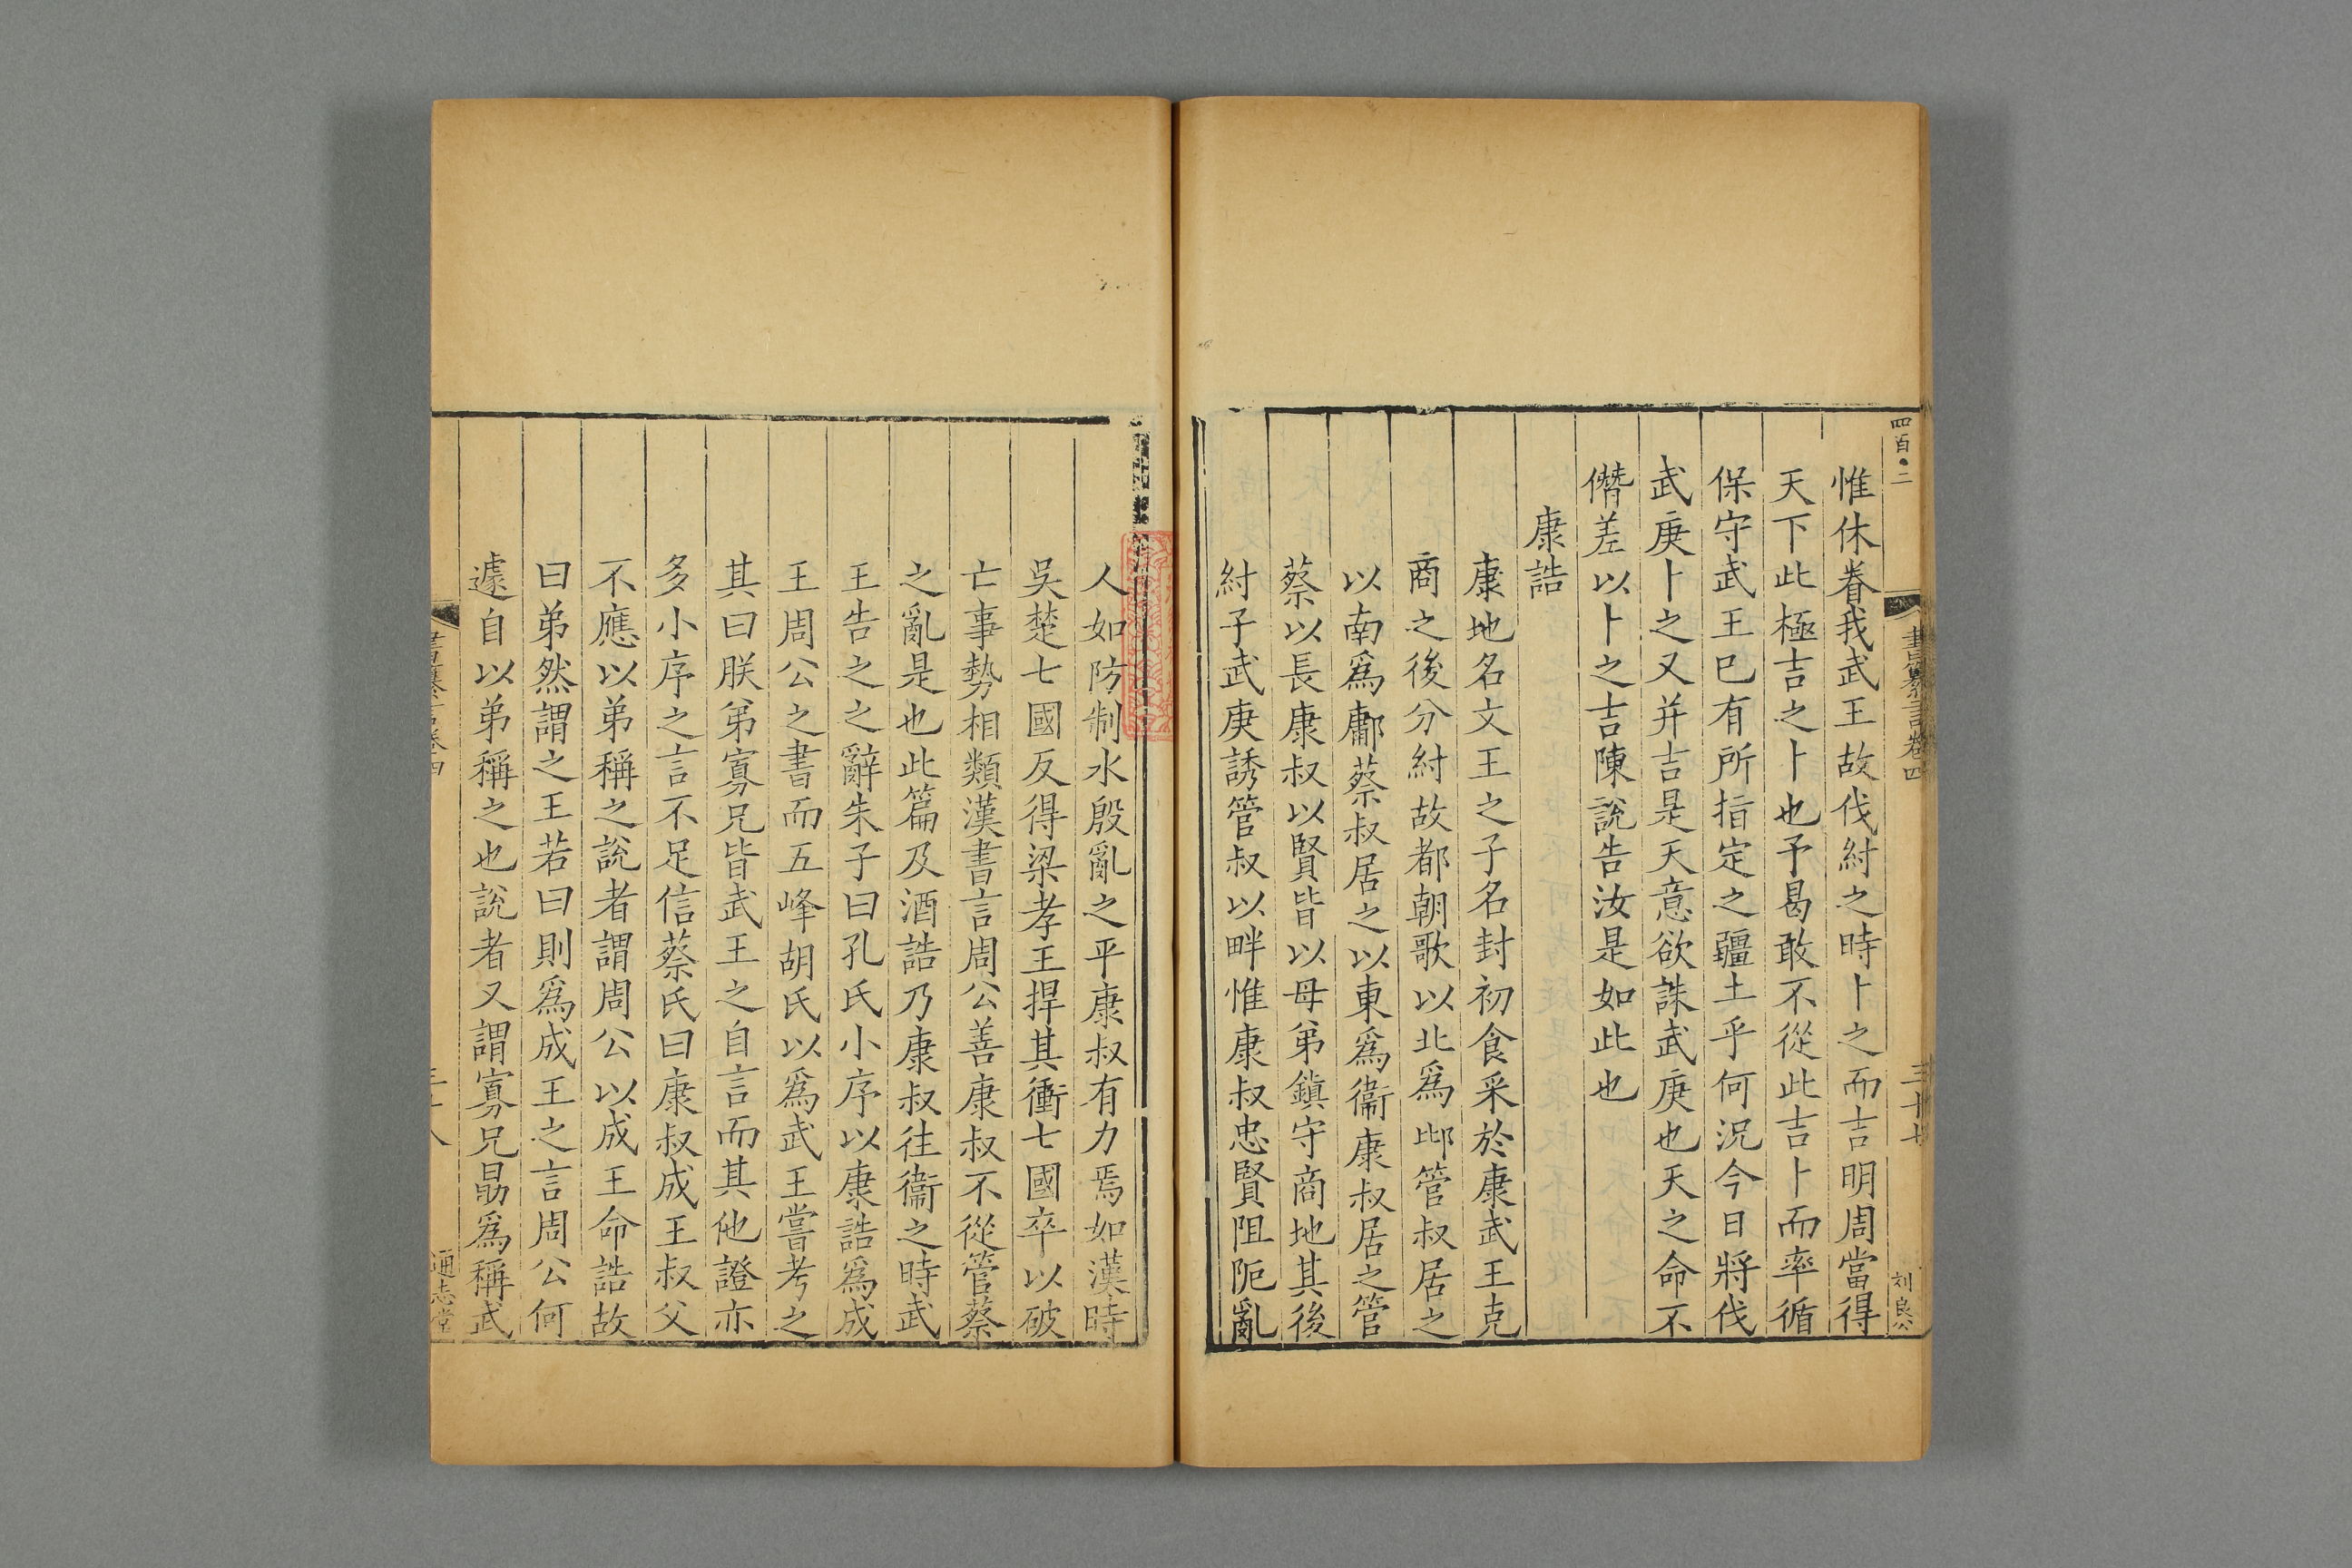 四百·二
書纂言卷四
三十七
刘良公
惟休眷我武王故伐紂之時卜之而吉明周當得
天下此極吉之卜也予曷敢不從此吉卜而率循
保守武王已有所指定之疆土乎何況今日將伐
武庚卜之又并吉是天意欲誅武庚也天之命不
僭差以卜之吉陳說告汝是如此也
康誥
康地名文王之子名封初食采於康武王克
商之後分紂故都朝歌以北爲邶管叔居之
以南爲鄘蔡叔居之以東爲衞康叔居之管
蔡以長康叔以賢皆以母弟鎮守商地其後
紂子武庚誘管叔以畔惟康叔忠賢阻阨亂
人如防制水殷亂之平康叔有力焉如漢時
吳楚七國反得梁孝王捍其衝七國卒以破
亡事勢相類漢書言周公善康叔不從管蔡
之亂是也此篇及酒誥乃康叔往衞之時武
王告之之辭朱子曰孔氏小序以康誥爲成
王周公之書而五峰胡氏以爲武王嘗考之
其曰朕弟寡兄皆武王之自言而其他證亦
多小序之言不足信蔡氏曰康叔成王叔父
不應以弟稱之說者謂周公以成王命誥故
曰弟然謂之王若曰則爲成王之言周公何
遽自以弟稱之也說者又謂寡兄勗爲稱武
書纂言卷四
三十八
通志堂